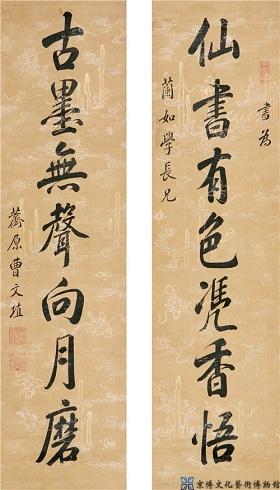 書為
仙書有色凴香悟
蘭如學長兄
古墨無聲向月磨
薺原曹文埴
京博文化藝術博物館